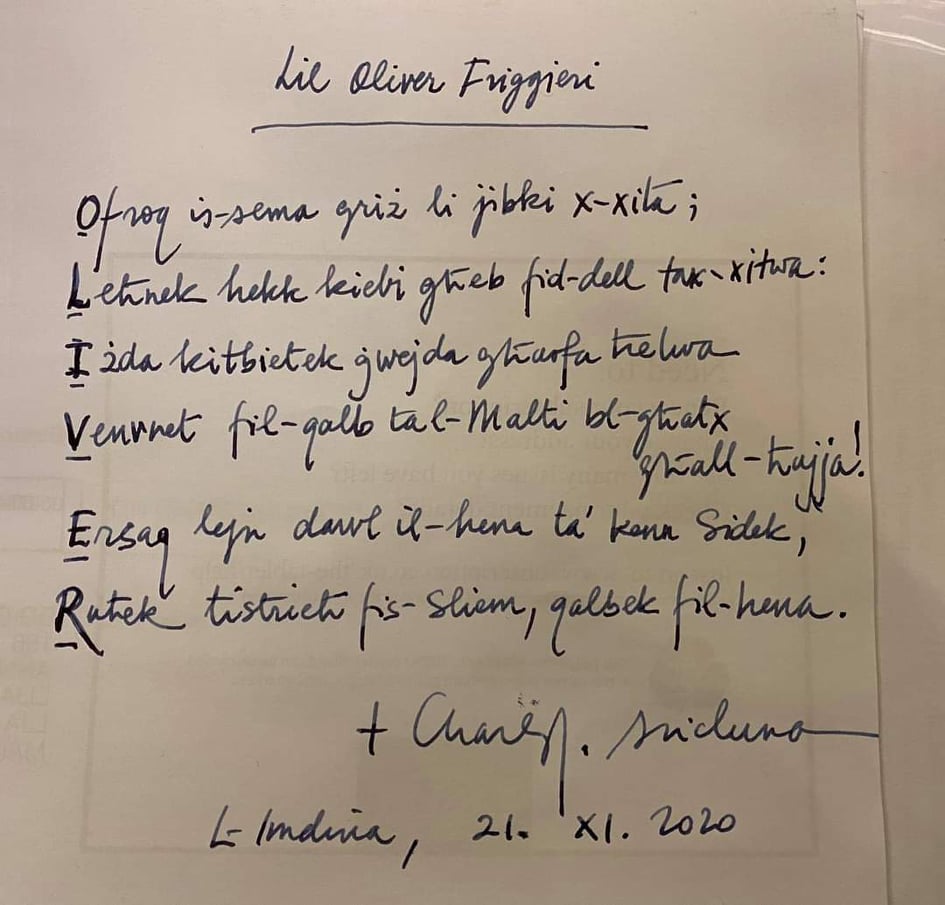 Lil Oliver Friggieri
Ofroq is-sema griż li jibki x-xita;
Leħnek hekk kiebi għeb fid-dell tax-xitwa:
Iżda kitbietek ġwejda għarfa ħelwa
Venvnet fil-qalb tal-Malti bl-għatx
għall-ħajja!
Ersaq lejn dawl il-hena ta' kenn Sidek,
Ruħek tistrieħ fis-Sliem, qalbek fil-hena.
+ Charles J. Scicluna
L-Imdina, 21. XI. 2020